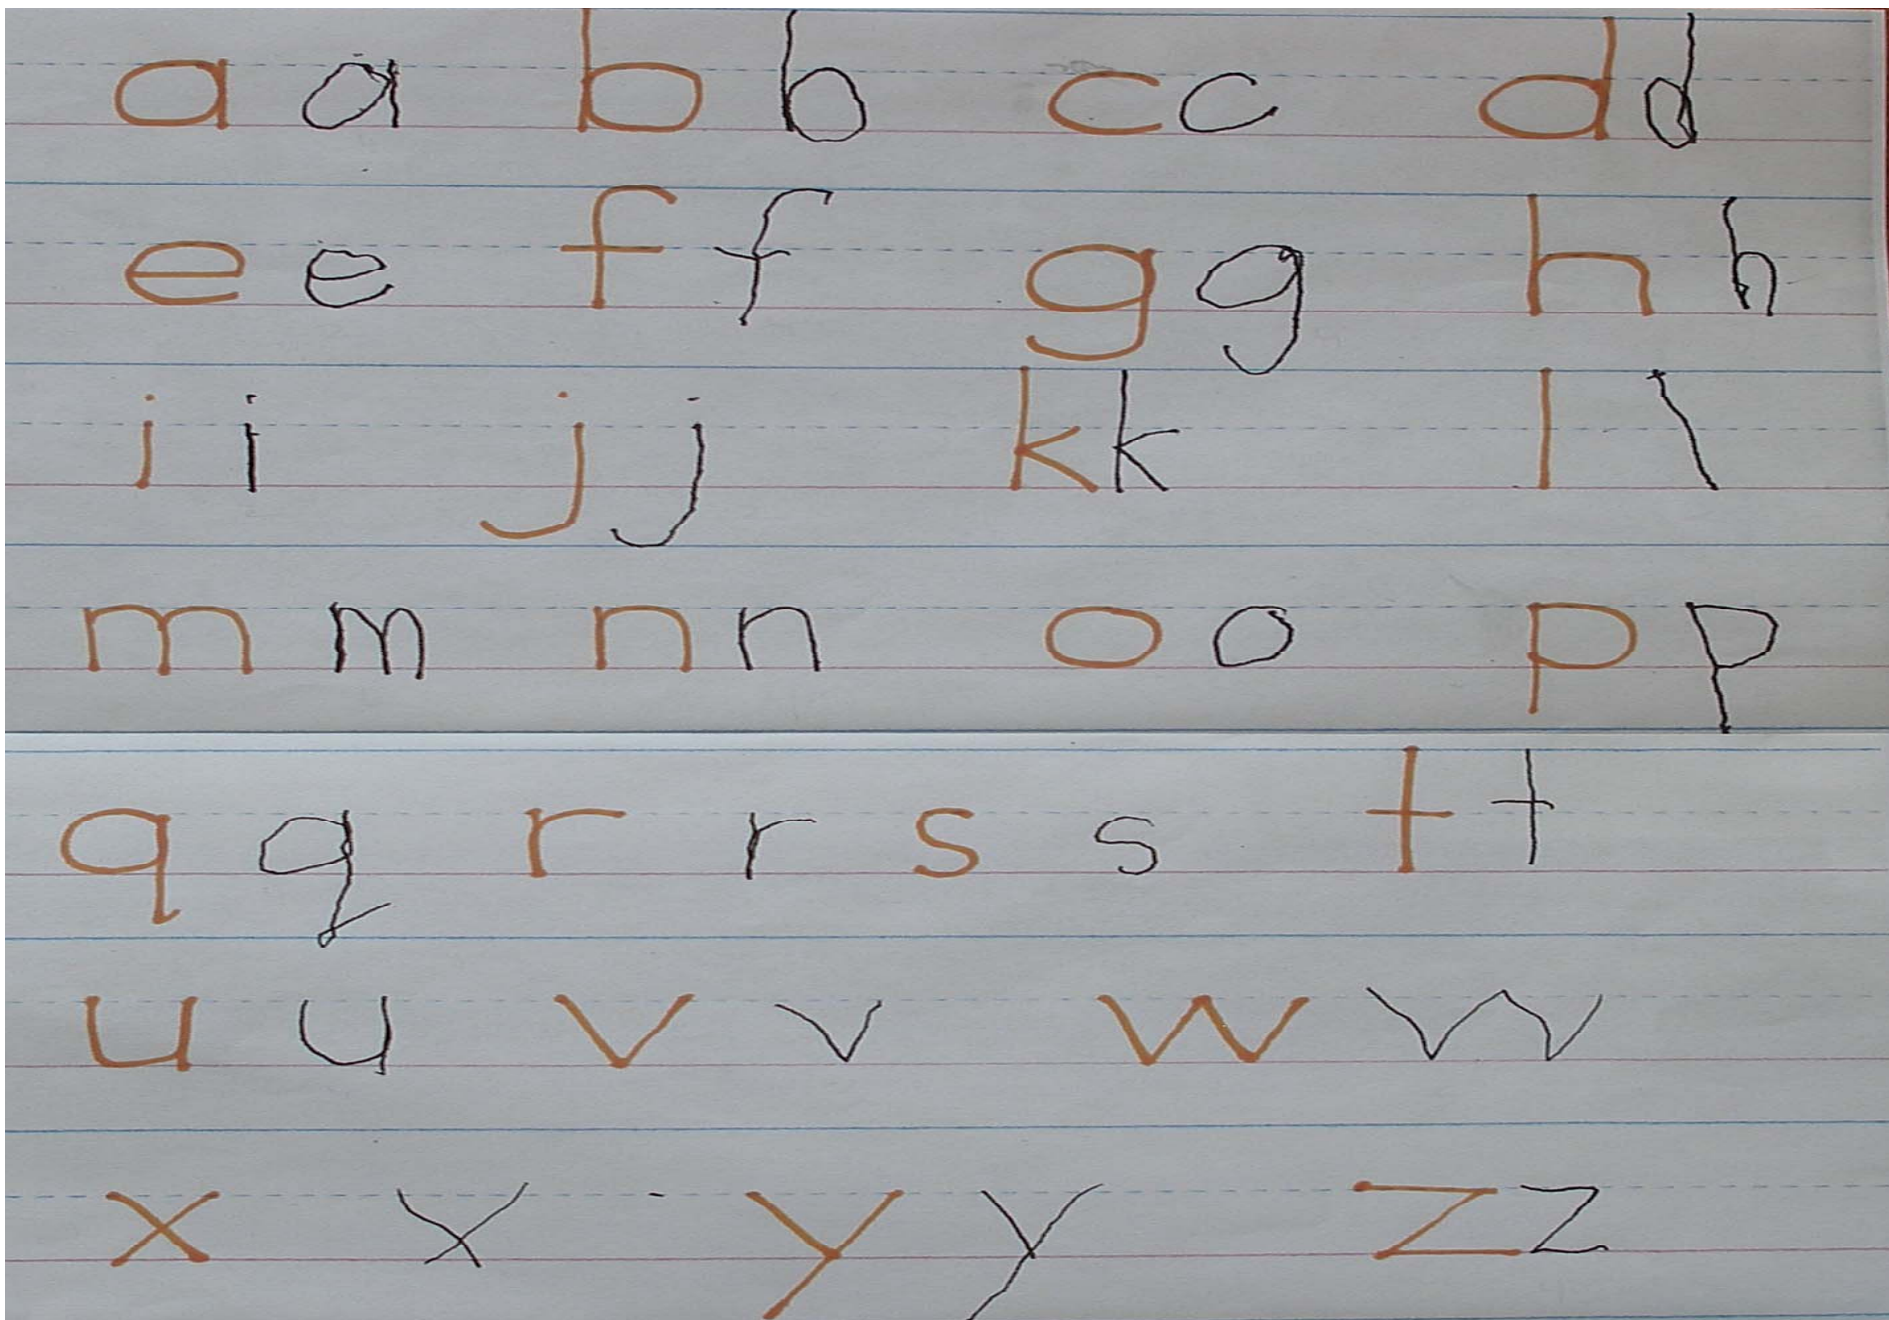 a a b b c c d d
e e f f g g h h
i i j j k k l l
m m n n o o p p
q q r r s s t t
u u v v w w
x x y y z z